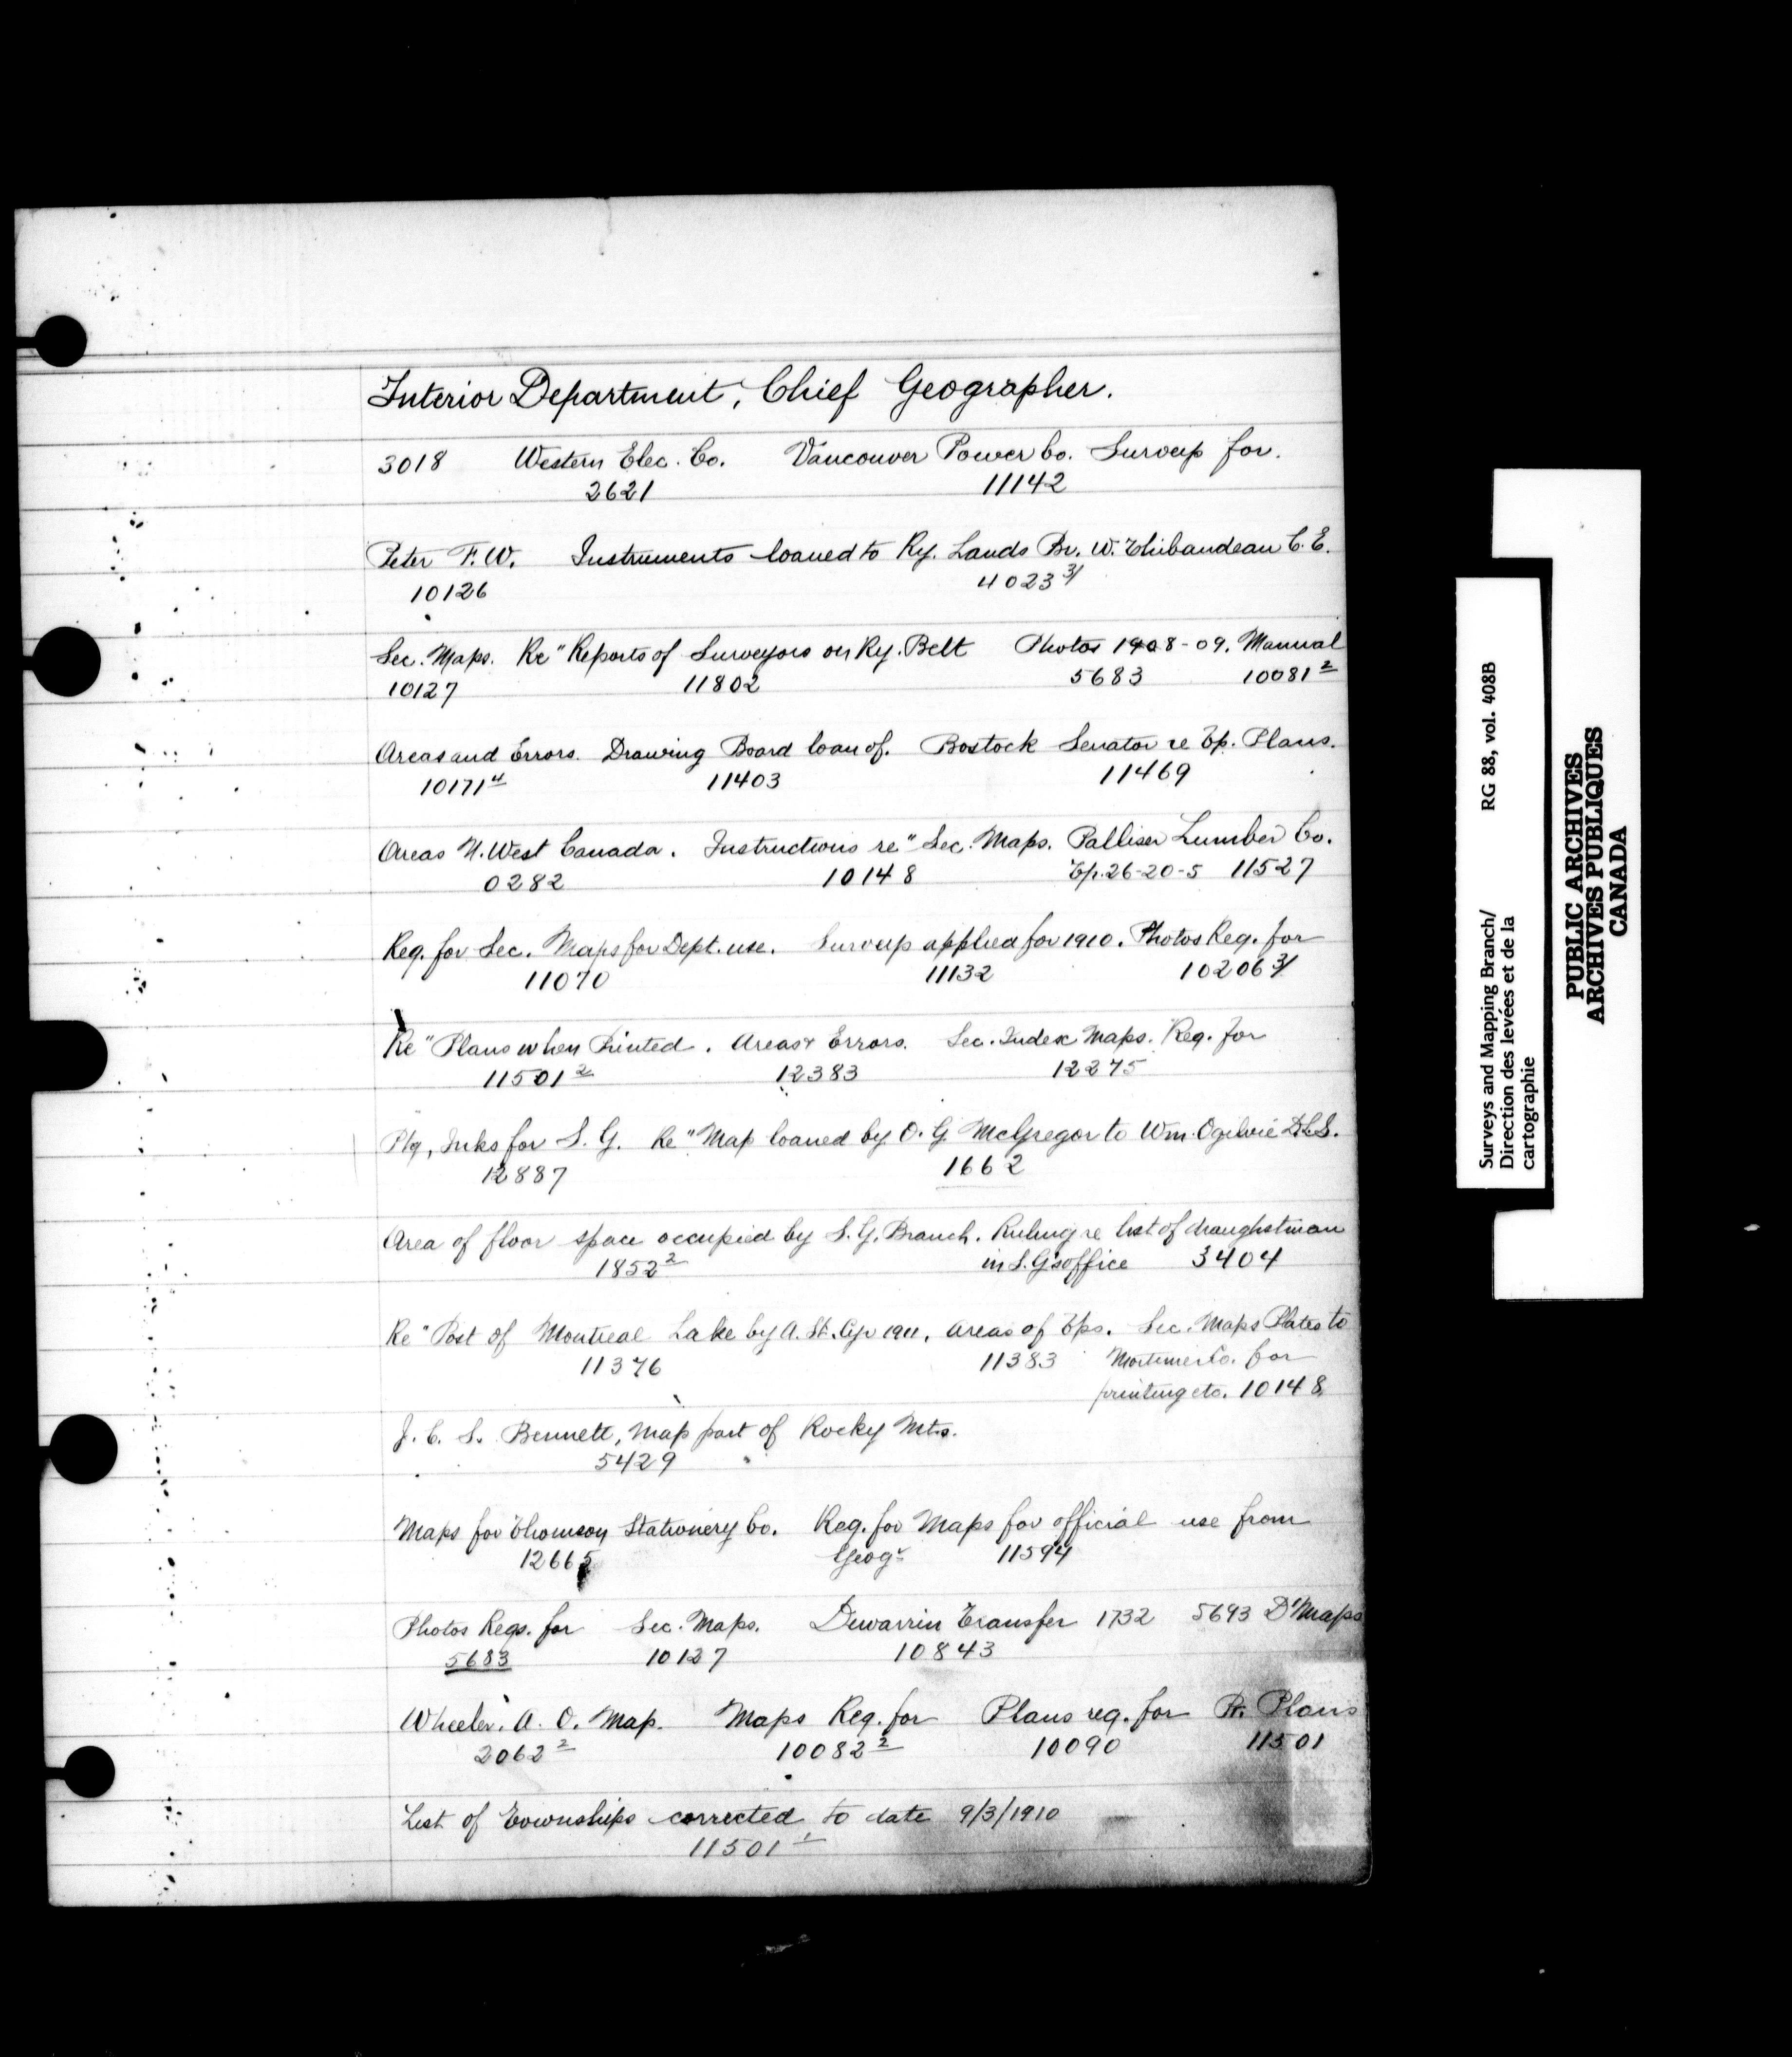 Interior Department, Chief Geographer.
3018 Western Elec. Co. Vancouver Power Co. Surveys for.
2621 11142
Peter F. W. Instruments loaned to Ry. Lands Br. W. Thibaudeau C. E.
10126 4023 3/
Sec. Maps. Re" Reports of Surveyors on Ry. Belt Photos 1908-09. Manual
10127 11802 5683 10081 2
Areas and Errors. Drawing Board loan of. Bostock Senator re Tp. Plans.
10171 4 11403 11469
Areas N. West Canada. Instructions re" Sec. Maps. Palliser Lumber Co.
0282 10148 Tp. 26-20-5 11527
Req. for Sec. Maps for Dept. use. Surveys applied for 1910. Photos Req. for
11070 11132 10206 3/
Re" Plans when Printed. Areas & Errors. Sec. Index Maps. Req. for
11501 2 12383 12275
Ptg, Inks for S. G. Re" Map loaned by O. G. McGregor to Wm. Ogilvie D.L.S.
12887 1662
Area of floor space occupied by S. G. Branch. Ruling re list of draughtsman
1852 2 in S. G's office 3404
Re" Post of Montreal Lake by A. St. Cyr 1911. Areas of Tps. Sec. Maps Plates to
11376 11383 Mortimer Co. for
printing etc. 10148
J. C. S. Bennett, Map part of Rocky Mts.
5429
Maps for Thomson Stationery Co. Req. for Maps for official use from
12665 Geogr 11594
Photos Reqs. for Sec. Maps. Dewarrin Transfer 1732 5693 D' Maps
5683 10127 10843
Wheeler. A. O. Map. Maps Req. for Plans req. for Pr. Plans
2062 2 10082 2 10090 11501
List of Townships corrected to date 9/3/1910
11501 1
Surveys and Mapping Branch/ RG 88, vol. 408B
Direction des levées et de la
cartographie
PUBLIC ARCHIVES
ARCHIVES PUBLIQUES
CANADA